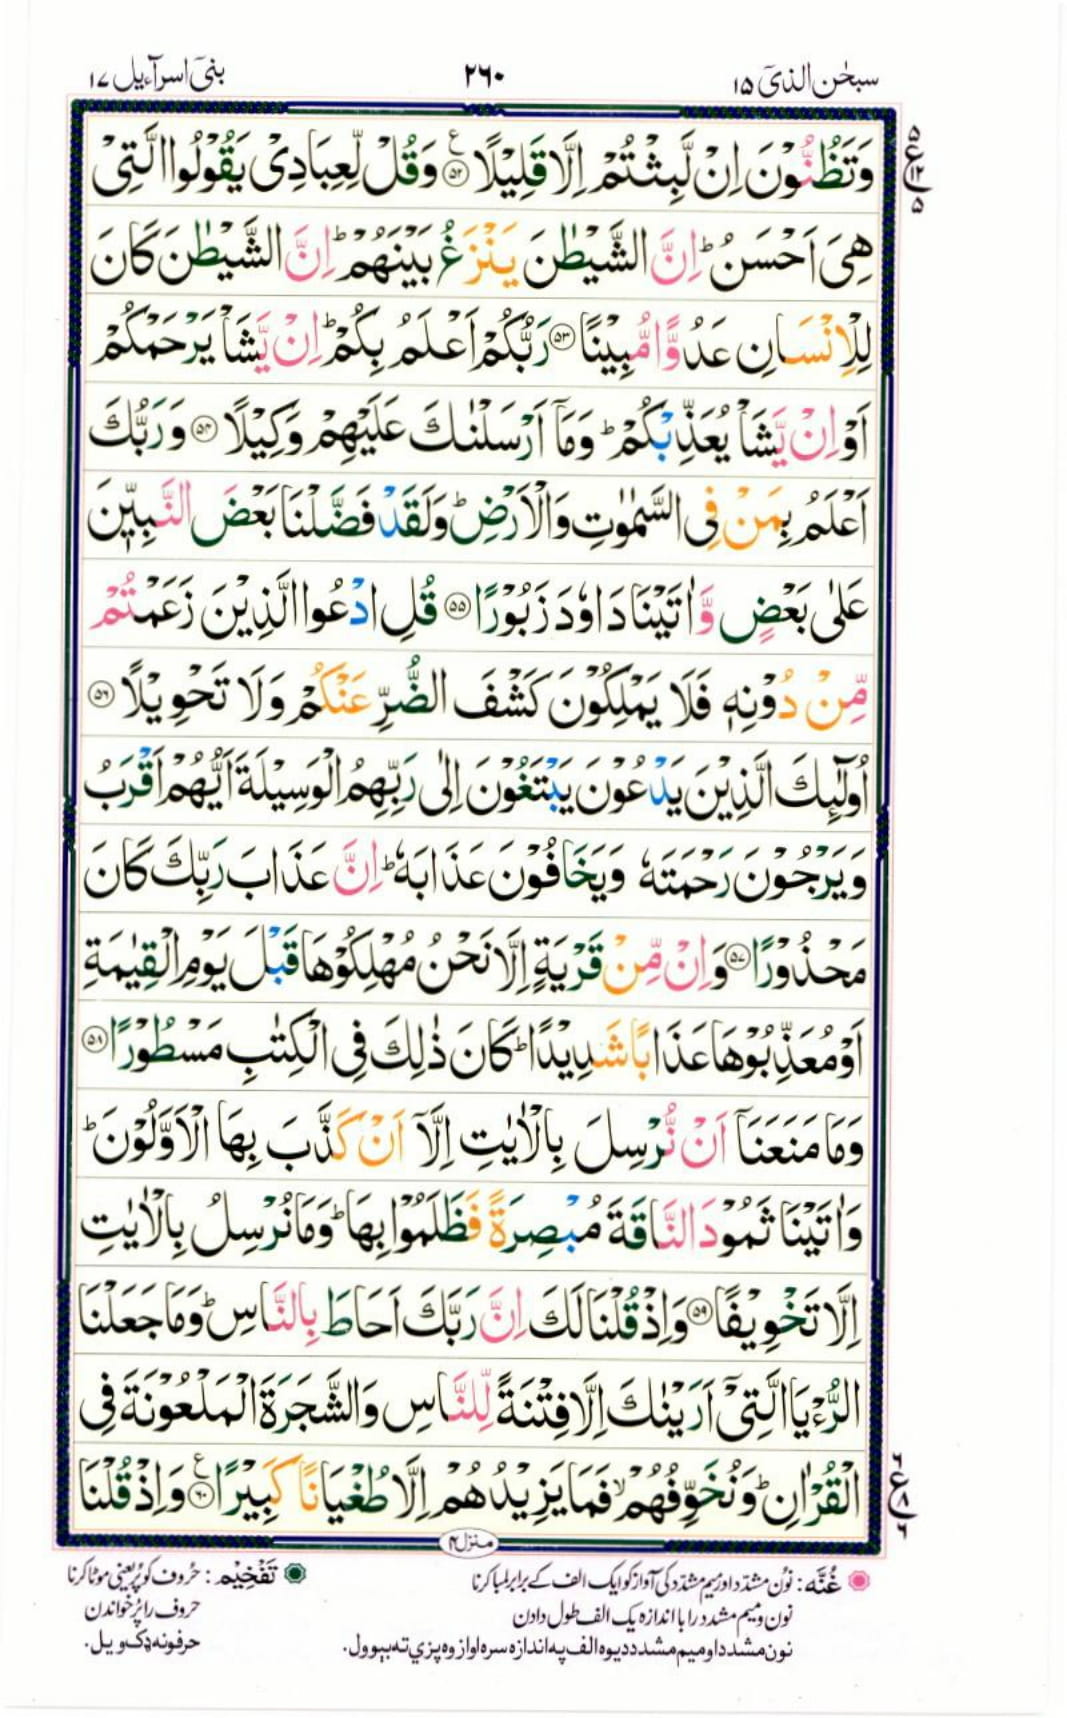 سبحٰن الذیۤ ۱۵
۲۶۰
بنیۤ اسرآءیل ۱۷
وَتَظُنُّوْنَ اِنْ لَّبِثْتُمْ اِلَّا قَلِيْلًا ۵۲ ع وَقُلْ لِّعِبَادِیْ يَقُوْلُوا الَّتِیْ
۵ ع ۱۲ ۵
هِیَ اَحْسَنُ ؕ اِنَّ الشَّيْطٰنَ يَنْزَغُ بَيْنَهُمْ ؕ اِنَّ الشَّيْطٰنَ كَانَ
لِلْاِنْسَانِ عَدُوًّا مُّبِيْنًا ۵۳ رَبُّكُمْ اَعْلَمُ بِكُمْ ؕ اِنْ يَّشَاْ يَرْحَمْكُمْ
اَوْ اِنْ يَّشَاْ يُعَذِّبْكُمْ ؕ وَمَاۤ اَرْسَلْنٰكَ عَلَيْهِمْ وَكِيْلًا ۵۴ وَرَبُّكَ
اَعْلَمُ بِمَنْ فِی السَّمٰوٰتِ وَالْاَرْضِ ؕ وَلَقَدْ فَضَّلْنَا بَعْضَ النَّبِيّٖنَ
عَلٰی بَعْضٍ وَّاٰتَيْنَا دَاوٗدَ زَبُوْرًا ۵۵ قُلِ ادْعُوا الَّذِيْنَ زَعَمْتُمْ
مِّنْ دُوْنِهٖ فَلَا يَمْلِكُوْنَ كَشْفَ الضُّرِّ عَنْكُمْ وَلَا تَحْوِيْلًا ۵۶
اُولٰٓئِكَ الَّذِيْنَ يَدْعُوْنَ يَبْتَغُوْنَ اِلٰی رَبِّهِمُ الْوَسِيْلَةَ اَيُّهُمْ اَقْرَبُ
وَيَرْجُوْنَ رَحْمَتَهٗ وَيَخَافُوْنَ عَذَابَهٗ ؕ اِنَّ عَذَابَ رَبِّكَ كَانَ
مَحْذُوْرًا ۵۷ وَاِنْ مِّنْ قَرْيَةٍ اِلَّا نَحْنُ مُهْلِكُوْهَا قَبْلَ يَوْمِ الْقِيٰمَةِ
اَوْ مُعَذِّبُوْهَا عَذَابًا شَدِيْدًا ؕ كَانَ ذٰلِكَ فِی الْكِتٰبِ مَسْطُوْرًا ۵۸
وَمَا مَنَعَنَاۤ اَنْ نُّرْسِلَ بِالْاٰيٰتِ اِلَّاۤ اَنْ كَذَّبَ بِهَا الْاَوَّلُوْنَ ؕ
وَاٰتَيْنَا ثَمُوْدَ النَّاقَةَ مُبْصِرَةً فَظَلَمُوْا بِهَا ؕ وَمَا نُرْسِلُ بِالْاٰيٰتِ
اِلَّا تَخْوِيْفًا ۵۹ وَاِذْ قُلْنَا لَكَ اِنَّ رَبَّكَ اَحَاطَ بِالنَّاسِ ؕ وَمَا جَعَلْنَا
الرُّءْيَا الَّتِیْۤ اَرَيْنٰكَ اِلَّا فِتْنَةً لِّلنَّاسِ وَالشَّجَرَةَ الْمَلْعُوْنَةَ فِی
الْقُرْاٰنِ ؕ وَنُخَوِّفُهُمْ ۙ فَمَا يَزِيْدُهُمْ اِلَّا طُغْيَانًا كَبِيْرًا ۶۰ ع وَاِذْ قُلْنَا
۶ ع ۸ ۶
منزل ۴
غُنَّه : نوُن مشدّد اور میم مشدّد کی آواز کو ایک الف کے برابر لمبا کرنا
نون و میم مشدد را با اندازه یک الف طول دادن
نون مشدد او میم مشدد د یوه الف په اندازه سره اواز وه پزي ته بېوول.
تَفْخِیْم : حرُوف کو پُر یعنی موٹا کرنا
حروف را پُر خواندن
حرفونه ډک ویل.